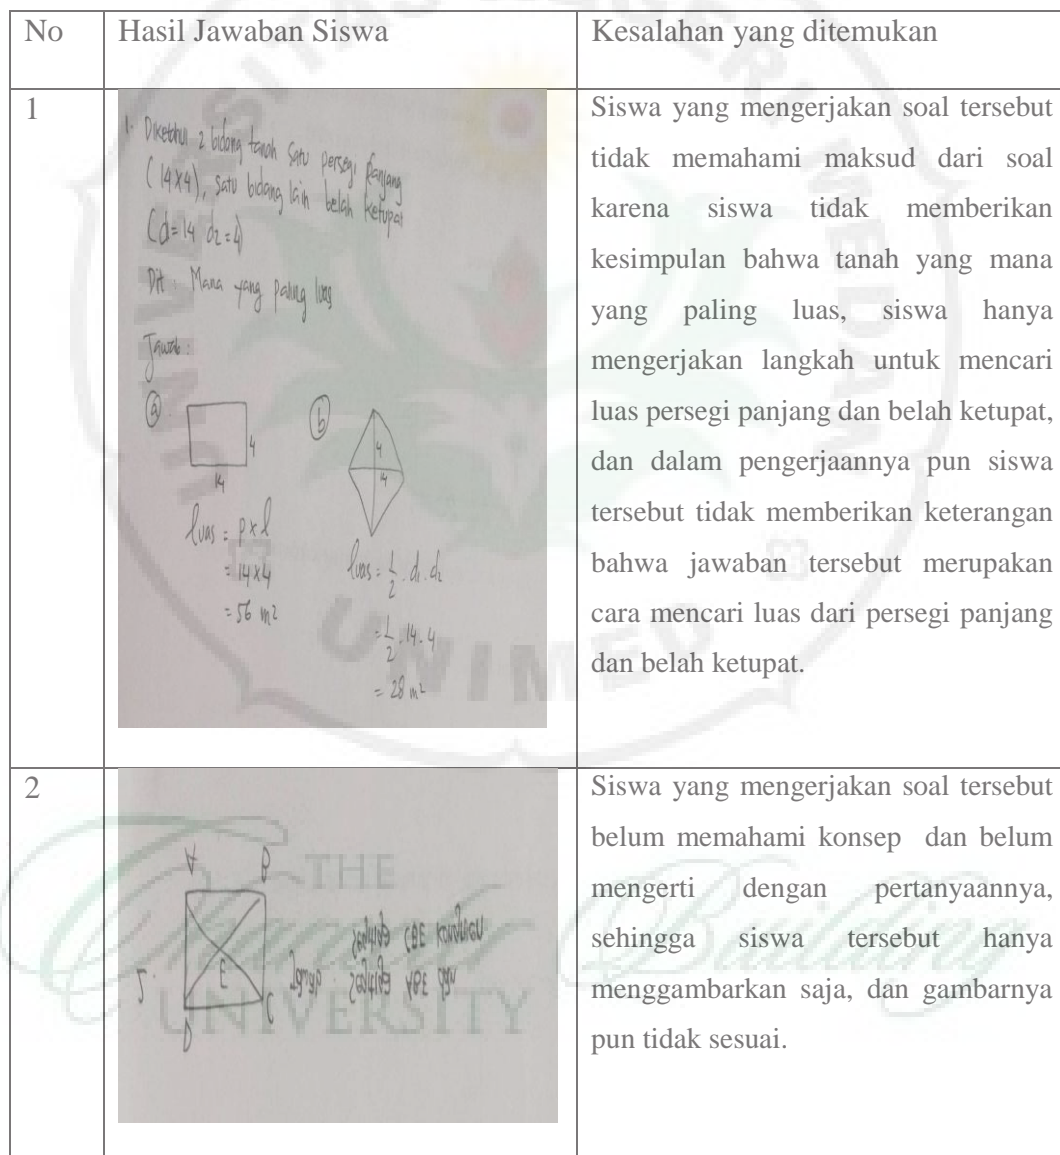 No
Hasil Jawaban Siswa
Kesalahan yang ditemukan
1
1. Diketahui 2 bidang tanah satu persegi panjang
(14x4), satu bidang lain belah ketupat
(d=14 d2=4)
Dit : Mana yang paling luas
Jawab :
a
4
14
luas = p x l
= 14x4
= 56 m2
b
4
14
luas = 1/2 . d1 . d2
= 1/2 . 14 . 4
= 28 m2
Siswa yang mengerjakan soal tersebut
tidak memahami maksud dari soal
karena siswa tidak memberikan
kesimpulan bahwa tanah yang mana
yang paling luas, siswa hanya
mengerjakan langkah untuk mencari
luas persegi panjang dan belah ketupat,
dan dalam pengerjaannya pun siswa
tersebut tidak memberikan keterangan
bahwa jawaban tersebut merupakan
cara mencari luas dari persegi panjang
dan belah ketupat.
2
A B
E
D C
Jawab : Segitiga ABE dan
Segitiga CBE kongruen
Siswa yang mengerjakan soal tersebut
belum memahami konsep dan belum
mengerti dengan pertanyaannya,
sehingga siswa tersebut hanya
menggambarkan saja, dan gambarnya
pun tidak sesuai.
UNIVERSITAS NEGERI MEDAN
UNIMED
THE
Character Building
UNIVERSITY